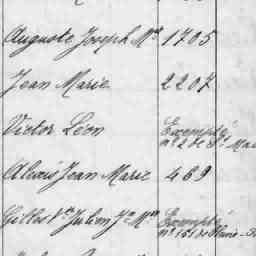 Auguste Joseph Me 1705
Jean Marie 2207
Victor Léon Exempté
n° 2 de St.
Alexis Jean Marie 469
Gilles Julien Exempté
n°